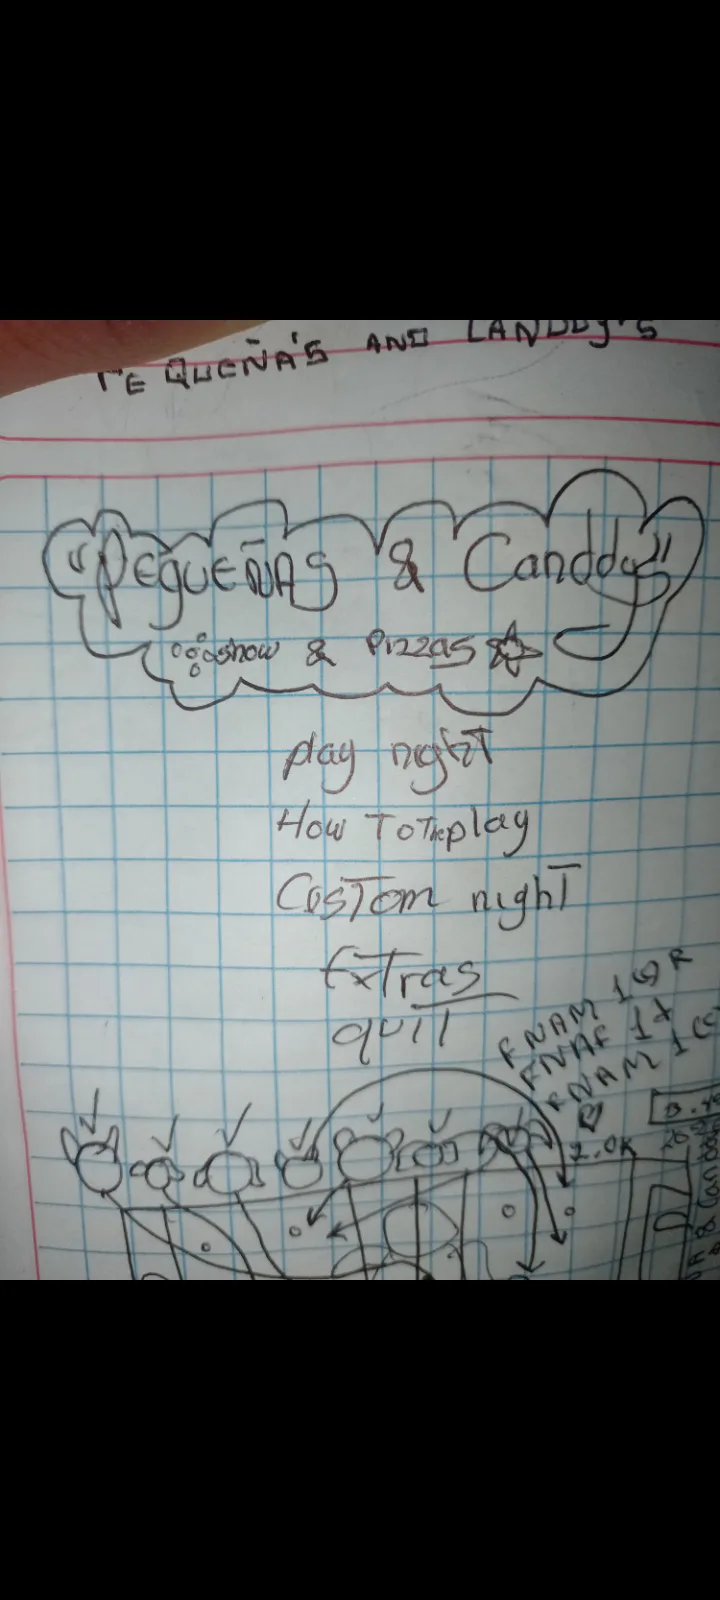 PEQUEÑA'S AND CANDDY'S
"PEQUEÑAS & Canddys"
show & Pizzas
play night
How To The play
CosTom night
ExTras
quit
FNAM 1
FNAF 1
FNAM 1
2.0K